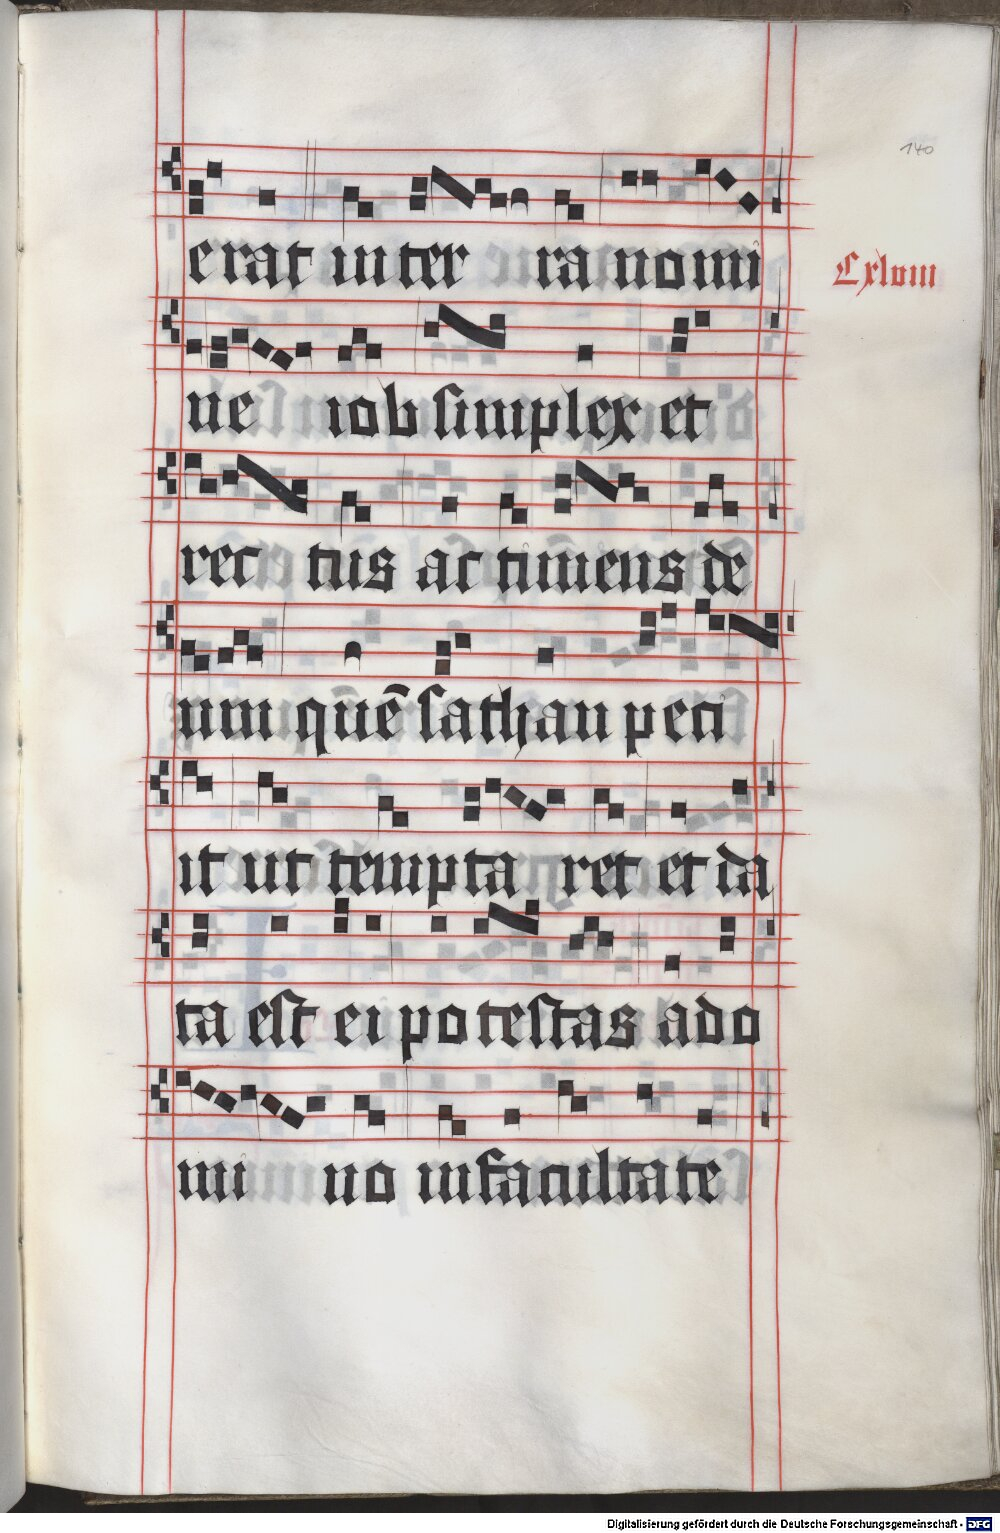 140
erat in ter ra nomi
Cxlviii
ne iob simplex et
rec tus ac timens de
um quē sathan peci
it ut tempta ret et da
ta est ei potestas a do
mi no in facultate
Digitalisierung gefördert durch die Deutsche Forschungsgemeinschaft - DFG